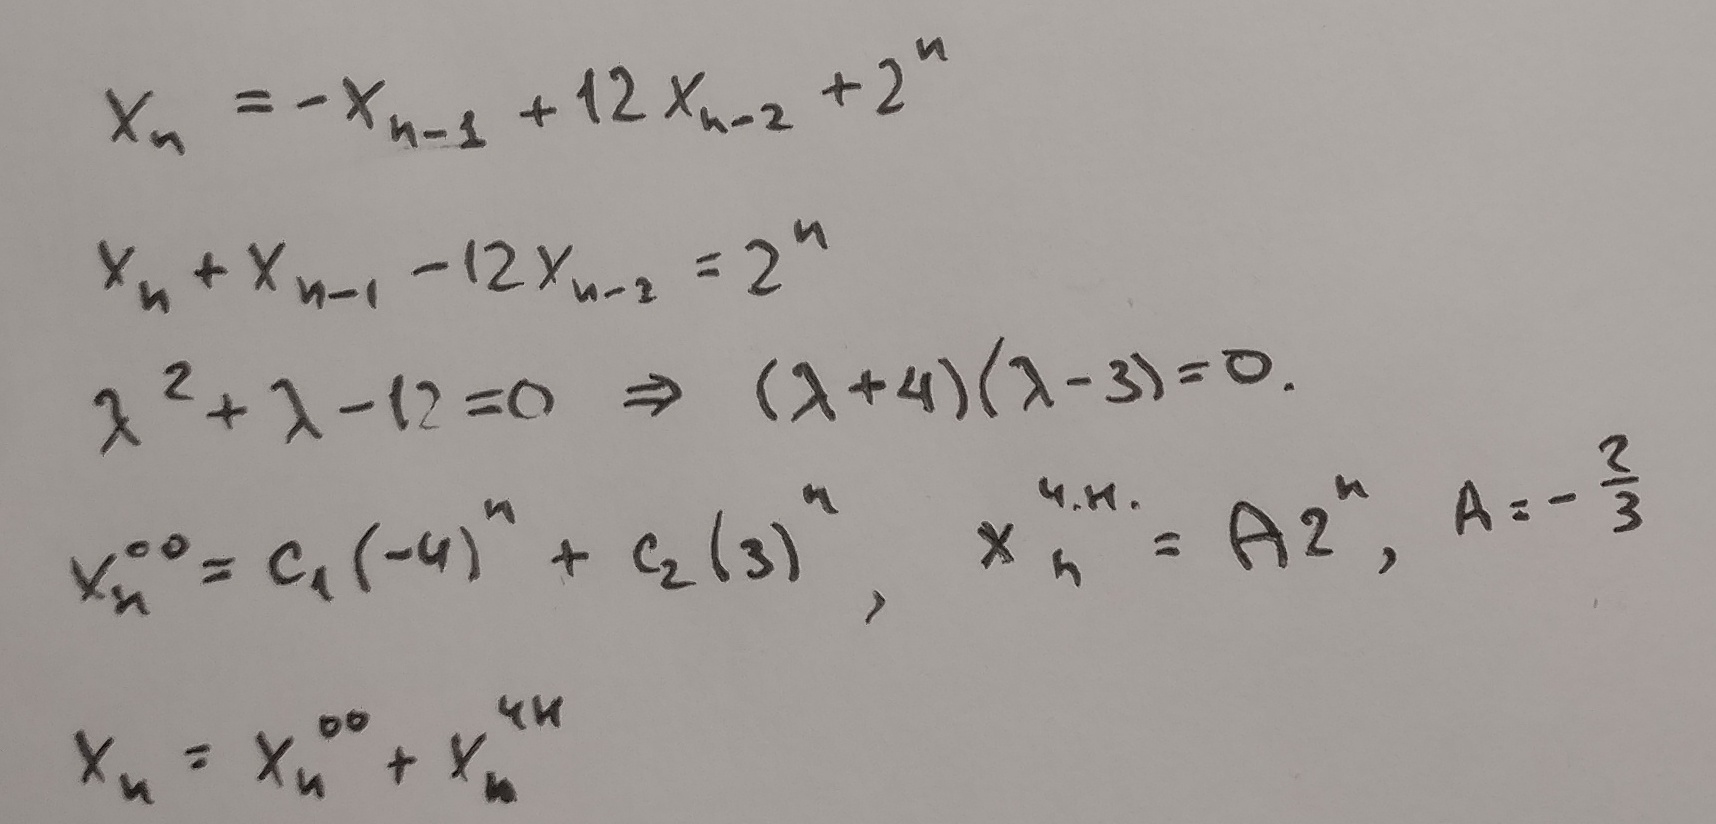 xₙ = -xₙ₋₁ + 12xₙ₋₂ + 2ⁿ
xₙ + xₙ₋₁ - 12xₙ₋₂ = 2ⁿ
λ² + λ - 12 = 0 ⇒ (λ+4)(λ-3) = 0.
xₙ^оо = C₁(-4)ⁿ + C₂(3)ⁿ, xₙ^ч.н. = A2ⁿ, A = -2/3
xₙ = xₙ^оо + xₙ^чн